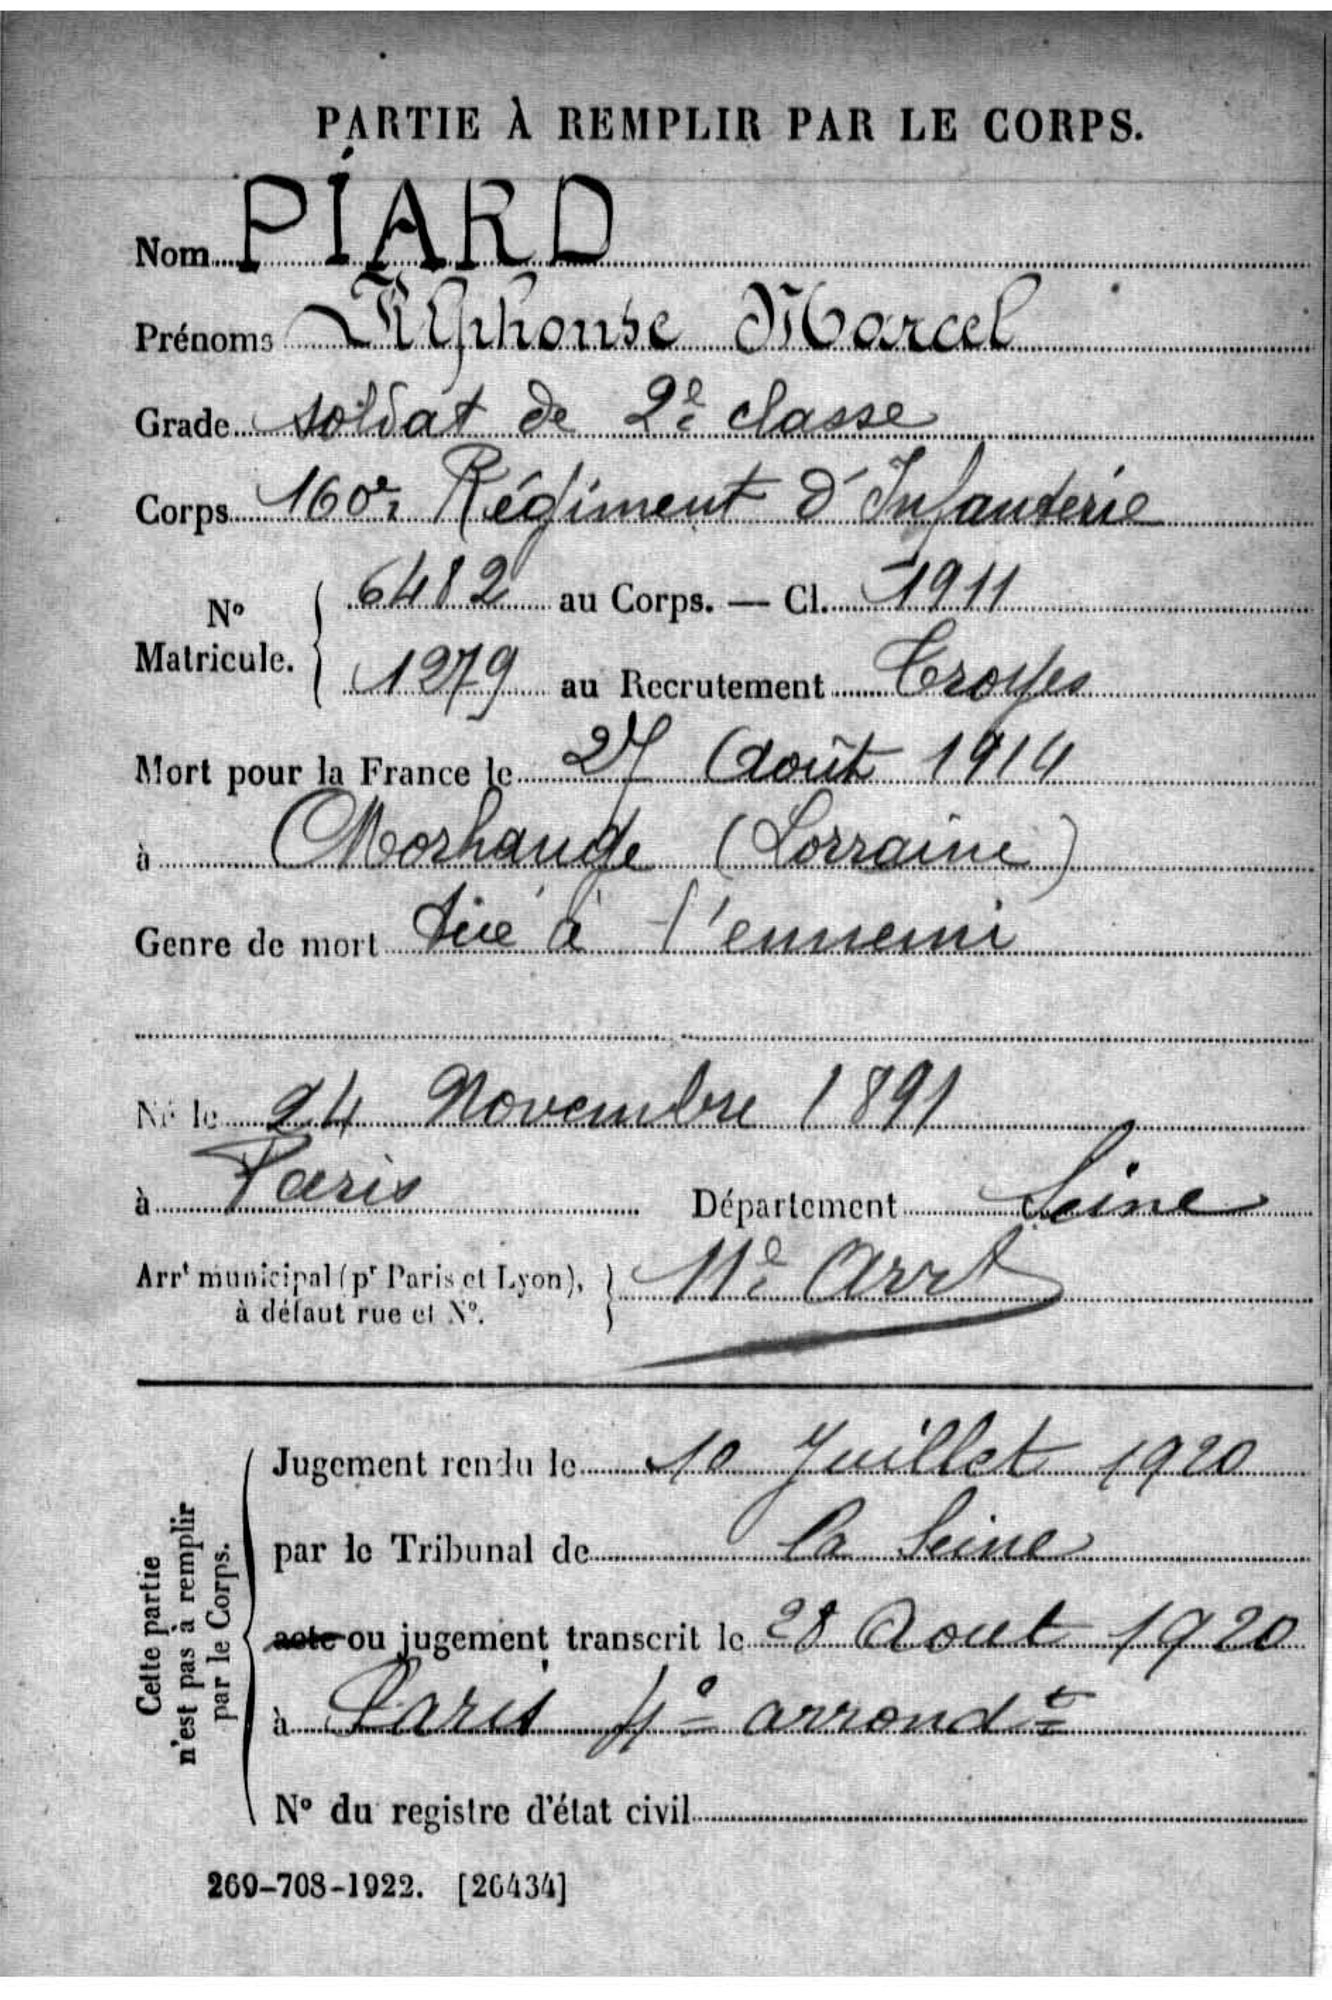 PARTIE À REMPLIR PAR LE CORPS.
Nom PIARD
Prénoms Alphonse Marcel
Grade soldat de 2e classe
Corps 160e Régiment d'Infanterie
N° Matricule. { 6482 au Corps. — Cl. 1911
1279 au Recrutement Troyes
Mort pour la France le 27 Août 1914
à Morhange (Lorraine)
Genre de mort tué à l'ennemi
Né le 24 Novembre 1891
à Paris Département Seine
Arrt municipal (pr Paris et Lyon), à défaut rue et N°. } 11e Arrt
Cette partie n'est pas à remplir par le Corps.
Jugement rendu le 10 Juillet 1920
par le Tribunal de la Seine
acte ou jugement transcrit le 28 Aout 1920
à Paris 4e arrondt
N° du registre d'état civil
269-708-1922. [26434]